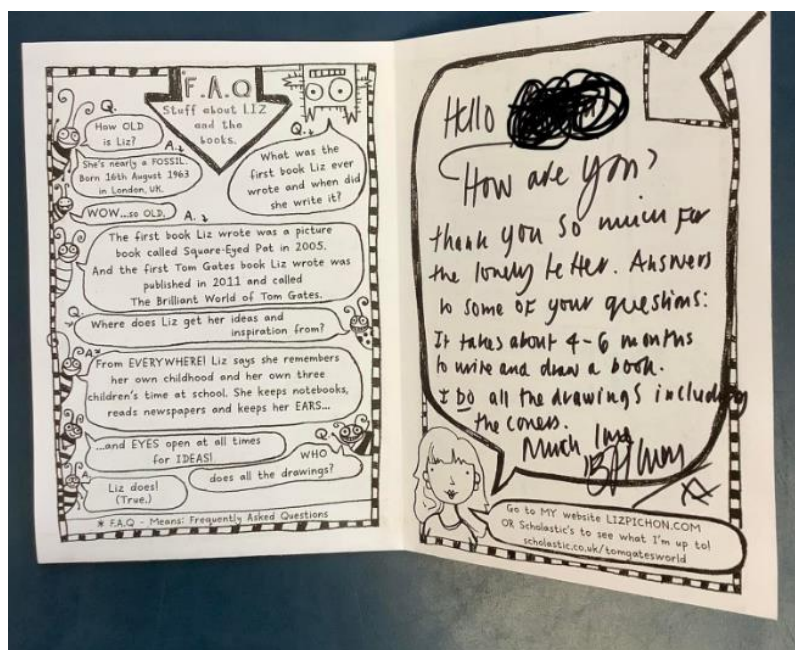 F.A.Q
Stuff about LIZ
and the
books.
Q.
How OLD
is Liz?
A.
She's nearly a FOSSIL.
Born 16th August 1963
in London, UK.
WOW...so OLD.
Q.
What was the
first book Liz ever
wrote and when did
she write it?
A.
The first book Liz wrote was a picture
book called Square-Eyed Pat in 2005.
And the first Tom Gates book Liz wrote was
published in 2011 and called
The Brilliant World of Tom Gates.
Q.
Where does Liz get her ideas and
inspiration from?
A.
From EVERYWHERE! Liz says she remembers
her own childhood and her own three
children's time at school. She keeps notebooks,
reads newspapers and keeps her EARS...
...and EYES open at all times
for IDEAS!
Q.
WHO
does all the drawings?
A.
Liz does!
(True.)
* F.A.Q - Means: Frequently Asked Questions
Hello
How are you?
thank you so much for
the lovely letter. Answers
to some of your questions:
It takes about 4-6 months
to write and draw a book.
I DO all the drawings including
the covers.
Much love
Go to MY website LIZPICHON.COM
OR Scholastic's to see what I'm up to!
scholastic.co.uk/tomgatesworld